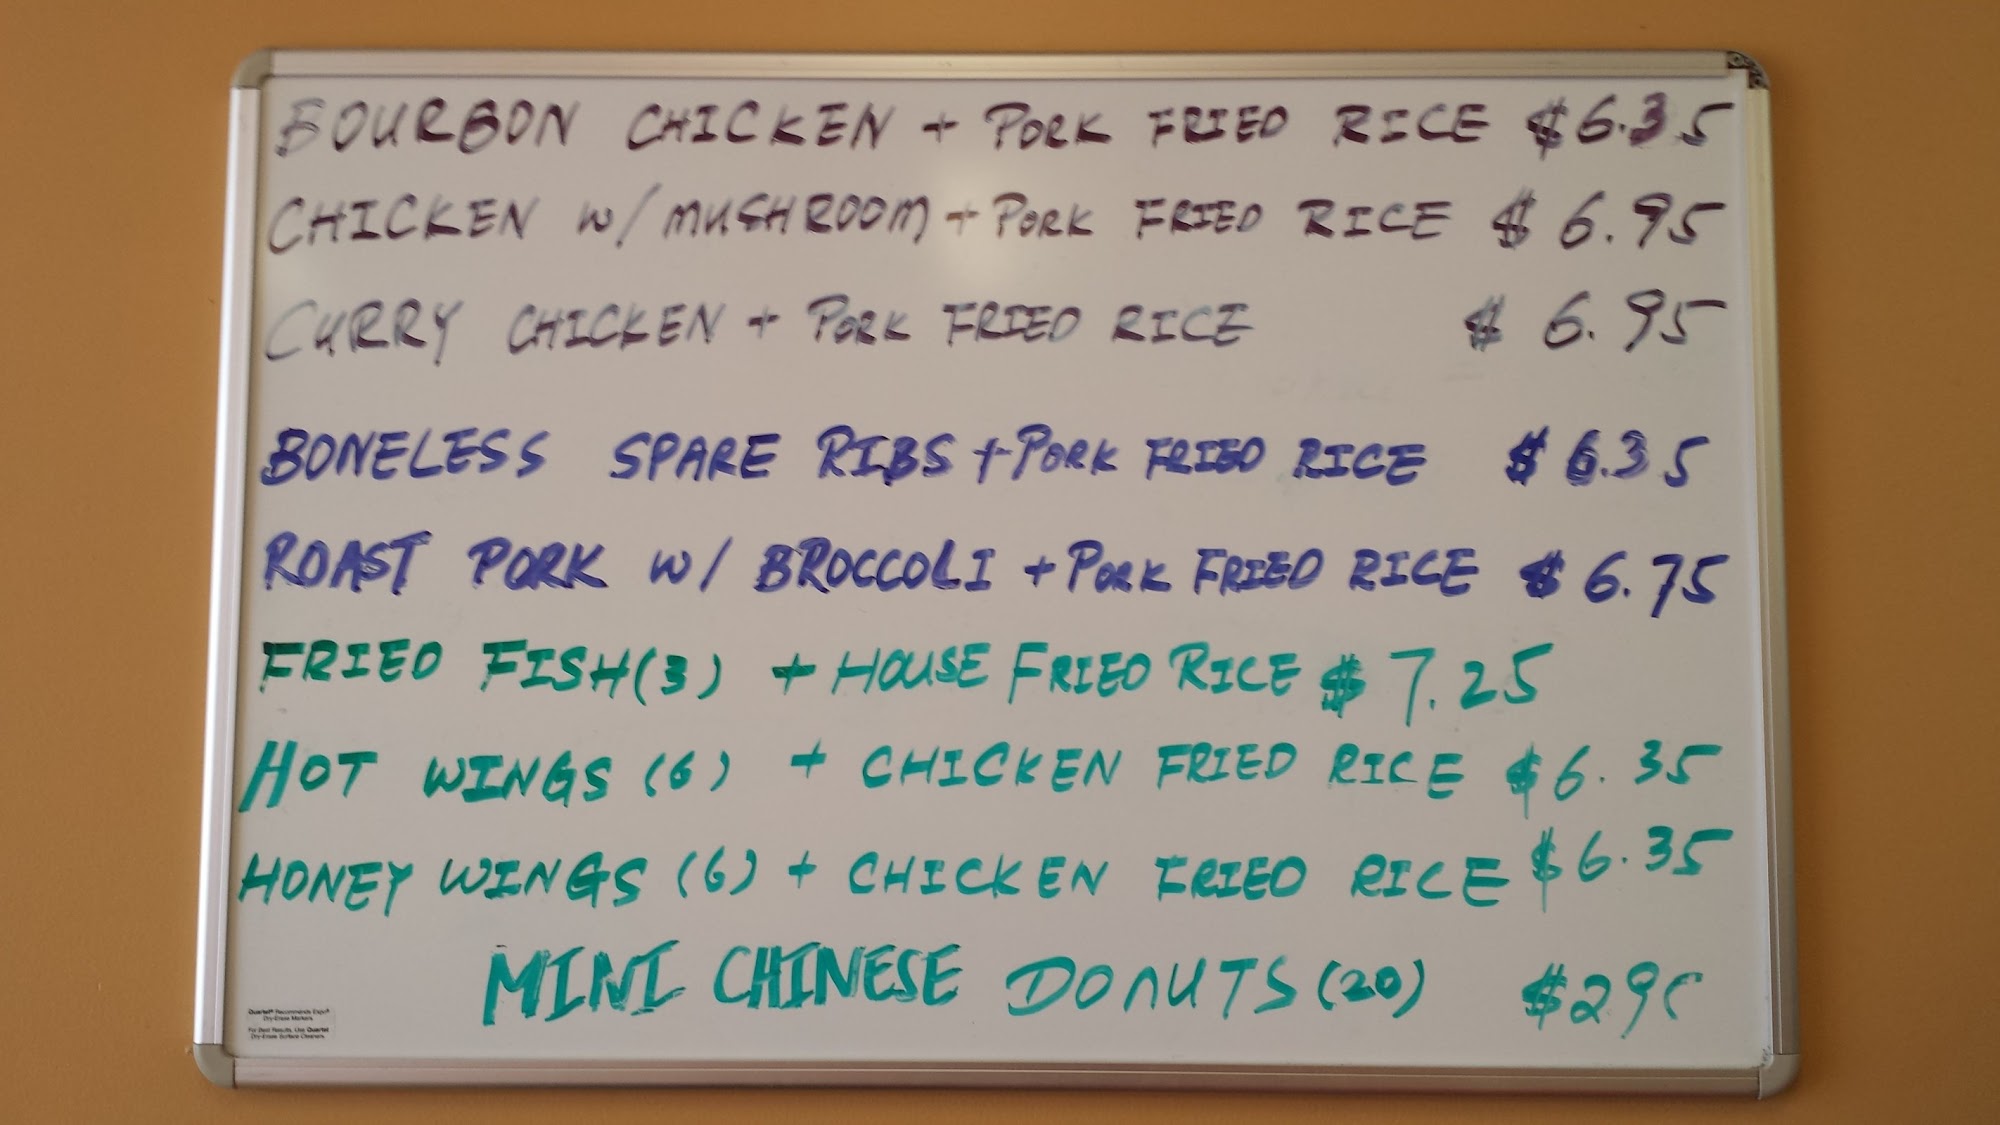 BOURBON CHICKEN + PORK FRIED RICE $6.35
CHICKEN W/ MUSHROOM + PORK FRIED RICE $6.95
CURRY CHICKEN + PORK FRIED RICE $6.95
BONELESS SPARE RIBS + PORK FRIED RICE $6.35
ROAST PORK W/ BROCCOLI + PORK FRIED RICE $6.75
FRIED FISH (3) + HOUSE FRIED RICE $7.25
HOT WINGS (6) + CHICKEN FRIED RICE $6.35
HONEY WINGS (6) + CHICKEN FRIED RICE $6.35
MINI CHINESE DONUTS (20)
Quartet® Recommends Expo®
Dry-Erase Markers.
For Best Results, Use Quartet
Dry-Erase Surface Cleaners.